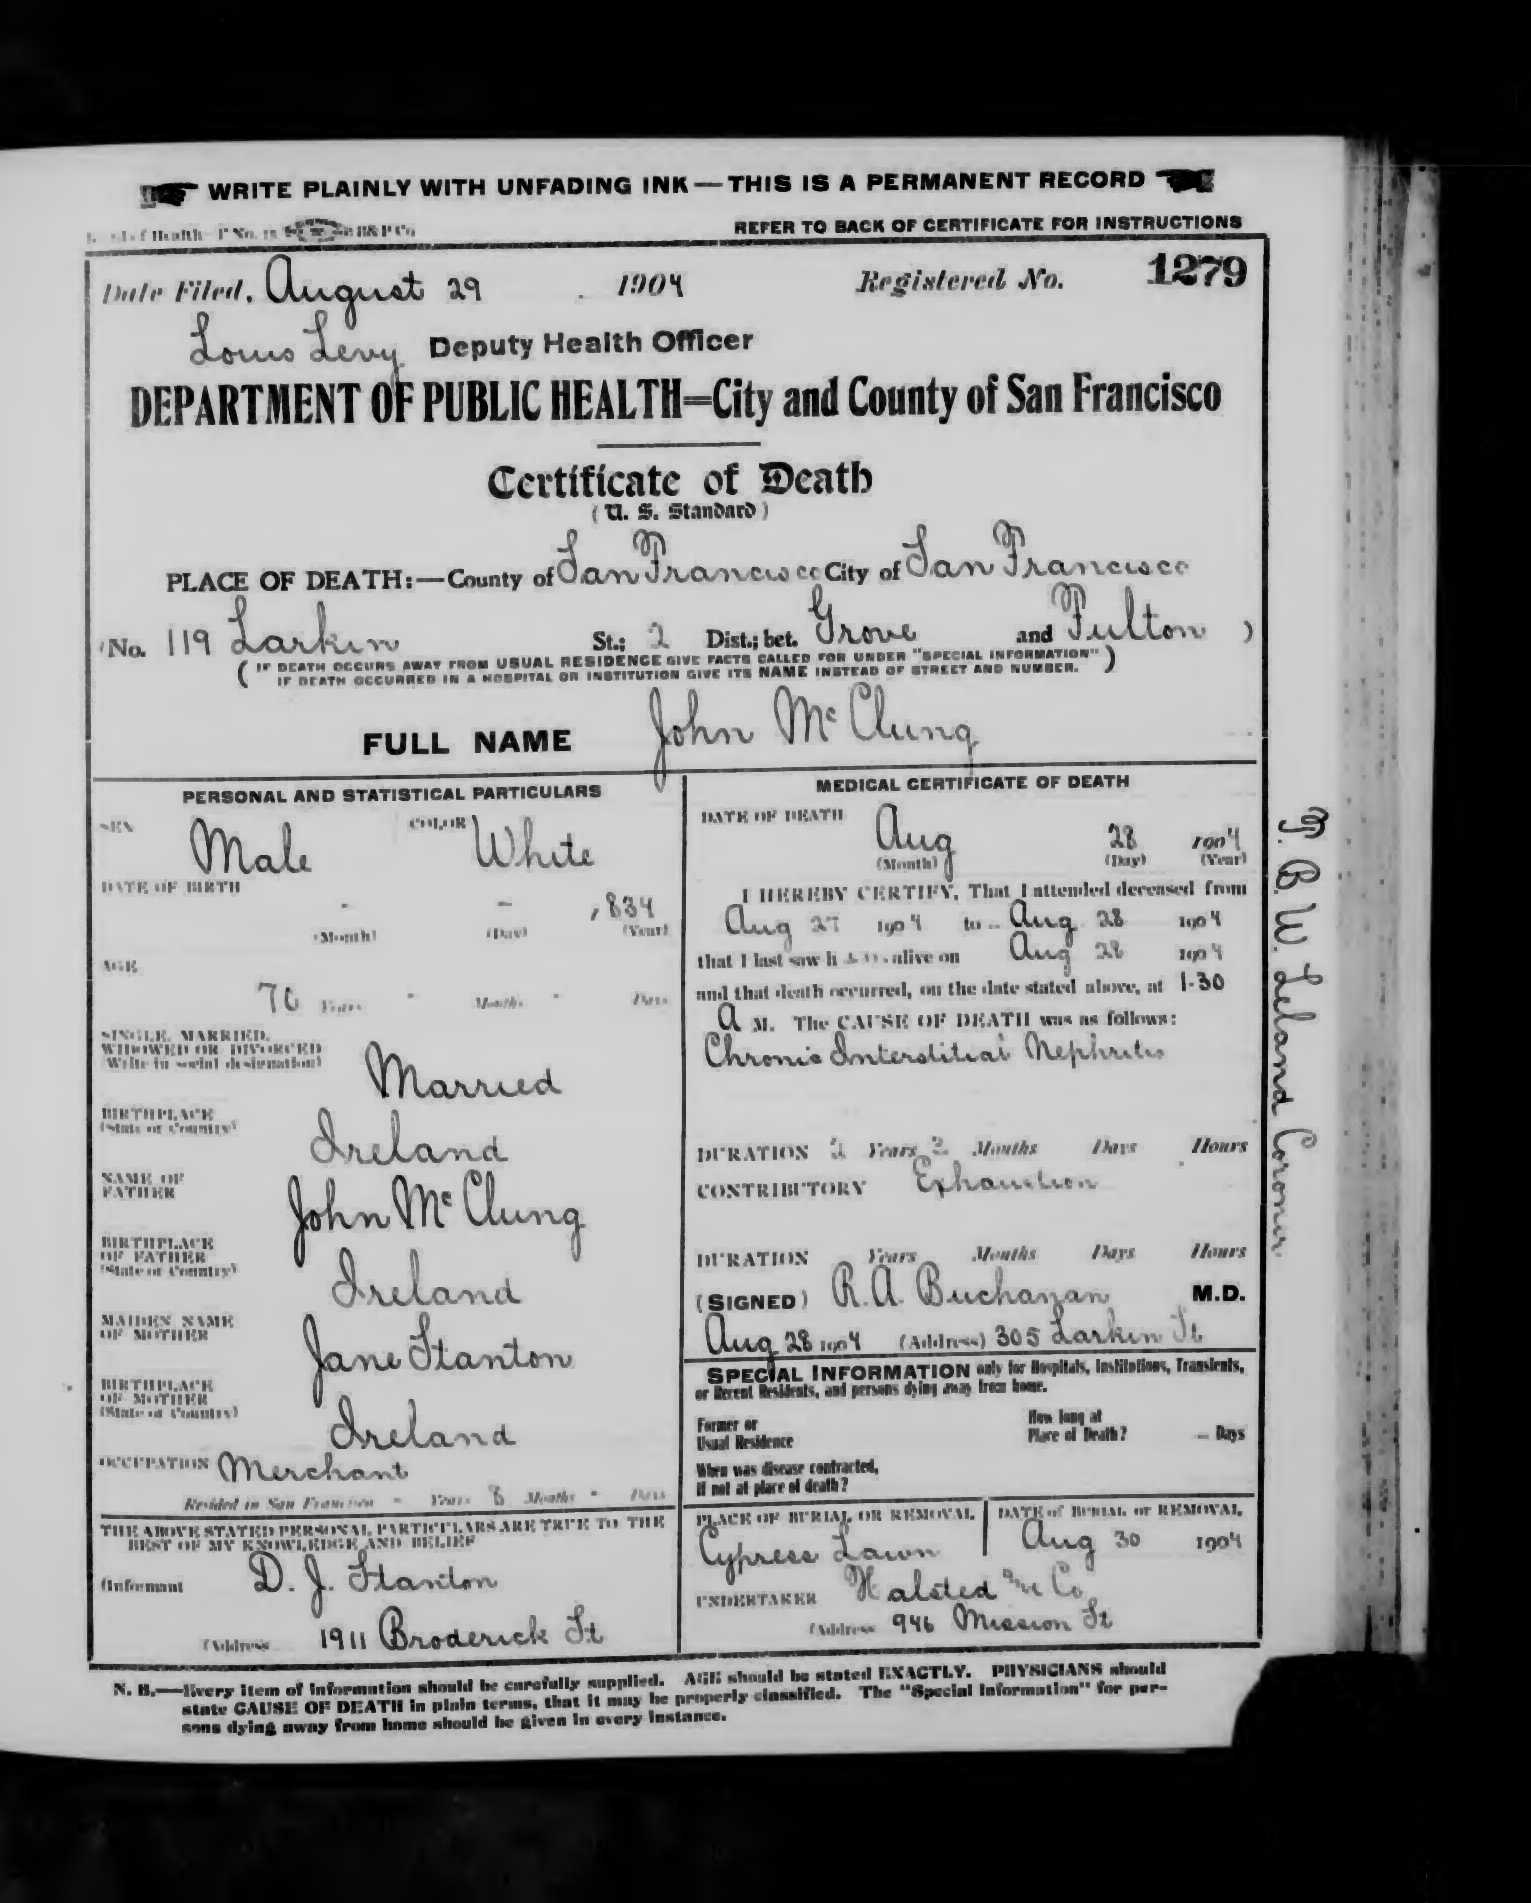 WRITE PLAINLY WITH UNFADING INK—THIS IS A PERMANENT RECORD
of Health—F No. H&P Co
REFER TO BACK OF CERTIFICATE FOR INSTRUCTIONS
Date Filed, August 29 1904 Registered No. 1279
Louis Levy Deputy Health Officer
DEPARTMENT OF PUBLIC HEALTH=City and County of San Francisco
Certificate of Death
(U. S. Standard)
PLACE OF DEATH:—County of San Francisco City of San Francisco
(No. 119 Larkin St.; 2 Dist.; bet. Grove and Fulton )
( IF DEATH OCCURS AWAY FROM USUAL RESIDENCE GIVE FACTS CALLED FOR UNDER "SPECIAL INFORMATION" )
IF DEATH OCCURRED IN A HOSPITAL OR INSTITUTION GIVE ITS NAME INSTEAD OF STREET AND NUMBER.
FULL NAME John McClung
PERSONAL AND STATISTICAL PARTICULARS
SEX Male COLOR White
DATE OF BIRTH - - 1834
(Month) (Day) (Year)
AGE
70 Years - Months - Days
SINGLE, MARRIED,
WIDOWED OR DIVORCED
(Write in social designation) Married
BIRTHPLACE
(State or Country) Ireland
NAME OF
FATHER John McClung
BIRTHPLACE
OF FATHER
(State or Country) Ireland
MAIDEN NAME
OF MOTHER Jane Stanton
BIRTHPLACE
OF MOTHER
(State or Country) Ireland
OCCUPATION Merchant
Resided in San Francisco - Years 8 Months - Days
THE ABOVE STATED PERSONAL PARTICULARS ARE TRUE TO THE
BEST OF MY KNOWLEDGE AND BELIEF
(Informant D. J. Stanton
(Address 1911 Broderick St
MEDICAL CERTIFICATE OF DEATH
DATE OF DEATH Aug 28 1904
(Month) (Day) (Year)
I HEREBY CERTIFY, That I attended deceased from
Aug 27 1904 to Aug 28 1904
that I last saw h alive on Aug 28 1904
and that death occurred, on the date stated above, at 1-30
A M. The CAUSE OF DEATH was as follows:
Chronic Interstitial Nephritis
DURATION 2 Years 2 Months Days Hours
CONTRIBUTORY Exhaustion
DURATION Years Months Days Hours
(SIGNED) R. A. Buchanan M.D.
Aug 28 1904 (Address) 305 Larkin St
SPECIAL INFORMATION only for Hospitals, Institutions, Transients,
or Recent Residents, and persons dying away from home.
Former or
Usual Residence
How long at
Place of Death? - Days
When was disease contracted,
if not at place of death?
PLACE OF BURIAL OR REMOVAL
Cypress Lawn
DATE of BURIAL or REMOVAL
Aug 30 1904
UNDERTAKER Halsted and Co
(Address 946 Mission St
T. B. W. Leland Coroner
N. B.—Every item of information should be carefully supplied. AGE should be stated EXACTLY. PHYSICIANS should
state CAUSE OF DEATH in plain terms, that it may be properly classified. The "Special Information" for per-
sons dying away from home should be given in every instance.